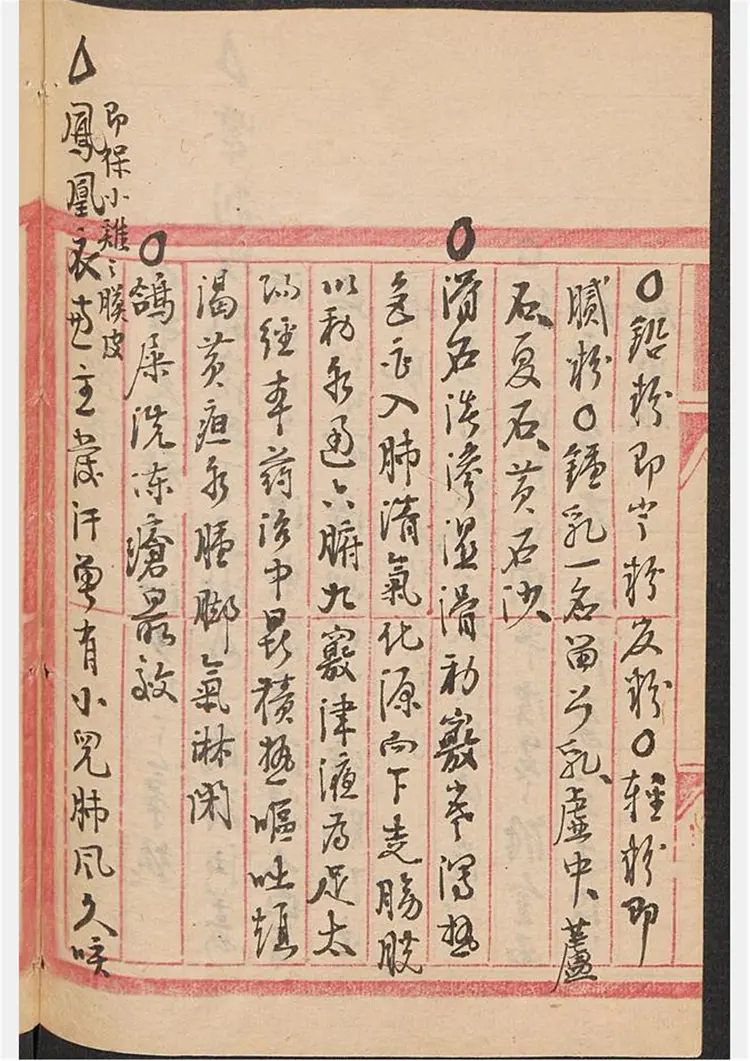 〇鉛粉即官粉定粉〇輕粉即
膩粉〇鍾乳一名留公乳、虛中、蘆
石、夏石、黃石沙、
〇滑石淡滲濕滑利竅降瀉熱
色白入肺清氣化源而下走膀胱
以利水通六腑九竅津液為足太
陽經本药治中暑積熱嘔吐煩
渴黃疸水腫脚氣淋閉
〇鴿屎洗凍瘡最效
即孵小雞之膜皮
△鳳凰衣 主 汗 有小兒肺风久咳